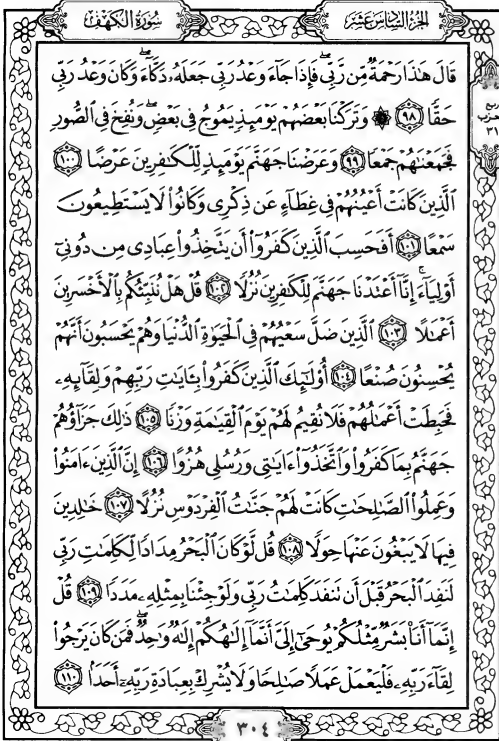 سُورَةُ الكَهْفِ
الجُزْءُ السَّادِسَ عَشَرَ
قَالَ هَٰذَا رَحْمَةٌ مِّن رَّبِّي ۖ فَإِذَا جَآءَ وَعْدُ رَبِّي جَعَلَهُۥ دَكَّآءَ ۖ وَكَانَ وَعْدُ رَبِّي
حَقًّا ٩٨ ۞ وَتَرَكْنَا بَعْضَهُمْ يَوْمَئِذٍ يَمُوجُ فِي بَعْضٍ ۖ وَنُفِخَ فِي ٱلصُّورِ
فَجَمَعْنَٰهُمْ جَمْعًا ٩٩ وَعَرَضْنَا جَهَنَّمَ يَوْمَئِذٍ لِّلْكَٰفِرِينَ عَرْضًا ١٠٠
ٱلَّذِينَ كَانَتْ أَعْيُنُهُمْ فِي غِطَآءٍ عَن ذِكْرِي وَكَانُوا۟ لَا يَسْتَطِيعُونَ
سَمْعًا ١٠١ أَفَحَسِبَ ٱلَّذِينَ كَفَرُوٓا۟ أَن يَتَّخِذُوا۟ عِبَادِي مِن دُونِيٓ
أَوْلِيَآءَ ۚ إِنَّآ أَعْتَدْنَا جَهَنَّمَ لِلْكَٰفِرِينَ نُزُلًا ١٠٢ قُلْ هَلْ نُنَبِّئُكُم بِٱلْأَخْسَرِينَ
أَعْمَٰلًا ١٠٣ ٱلَّذِينَ ضَلَّ سَعْيُهُمْ فِي ٱلْحَيَوٰةِ ٱلدُّنْيَا وَهُمْ يَحْسَبُونَ أَنَّهُمْ
يُحْسِنُونَ صُنْعًا ١٠٤ أُو۟لَٰٓئِكَ ٱلَّذِينَ كَفَرُوا۟ بِـَٔايَٰتِ رَبِّهِمْ وَلِقَآئِهِۦ
فَحَبِطَتْ أَعْمَٰلُهُمْ فَلَا نُقِيمُ لَهُمْ يَوْمَ ٱلْقِيَٰمَةِ وَزْنًا ١٠٥ ذَٰلِكَ جَزَآؤُهُمْ
جَهَنَّمُ بِمَا كَفَرُوا۟ وَٱتَّخَذُوٓا۟ ءَايَٰتِي وَرُسُلِي هُزُوًا ١٠٦ إِنَّ ٱلَّذِينَ ءَامَنُوا۟
وَعَمِلُوا۟ ٱلصَّٰلِحَٰتِ كَانَتْ لَهُمْ جَنَّٰتُ ٱلْفِرْدَوْسِ نُزُلًا ١٠٧ خَٰلِدِينَ
فِيهَا لَا يَبْغُونَ عَنْهَا حِوَلًا ١٠٨ قُل لَّوْ كَانَ ٱلْبَحْرُ مِدَادًا لِّكَلِمَٰتِ رَبِّي
لَنَفِدَ ٱلْبَحْرُ قَبْلَ أَن تَنفَدَ كَلِمَٰتُ رَبِّي وَلَوْ جِئْنَا بِمِثْلِهِۦ مَدَدًا ١٠٩ قُلْ
إِنَّمَآ أَنَا۠ بَشَرٌ مِّثْلُكُمْ يُوحَىٰٓ إِلَيَّ أَنَّمَآ إِلَٰهُكُمْ إِلَٰهٌ وَٰحِدٌ ۖ فَمَن كَانَ يَرْجُوا۟
لِقَآءَ رَبِّهِۦ فَلْيَعْمَلْ عَمَلًا صَٰلِحًا وَلَا يُشْرِكْ بِعِبَادَةِ رَبِّهِۦٓ أَحَدًۢا ١١٠
ربع
حزب
٣١
٣٠٤